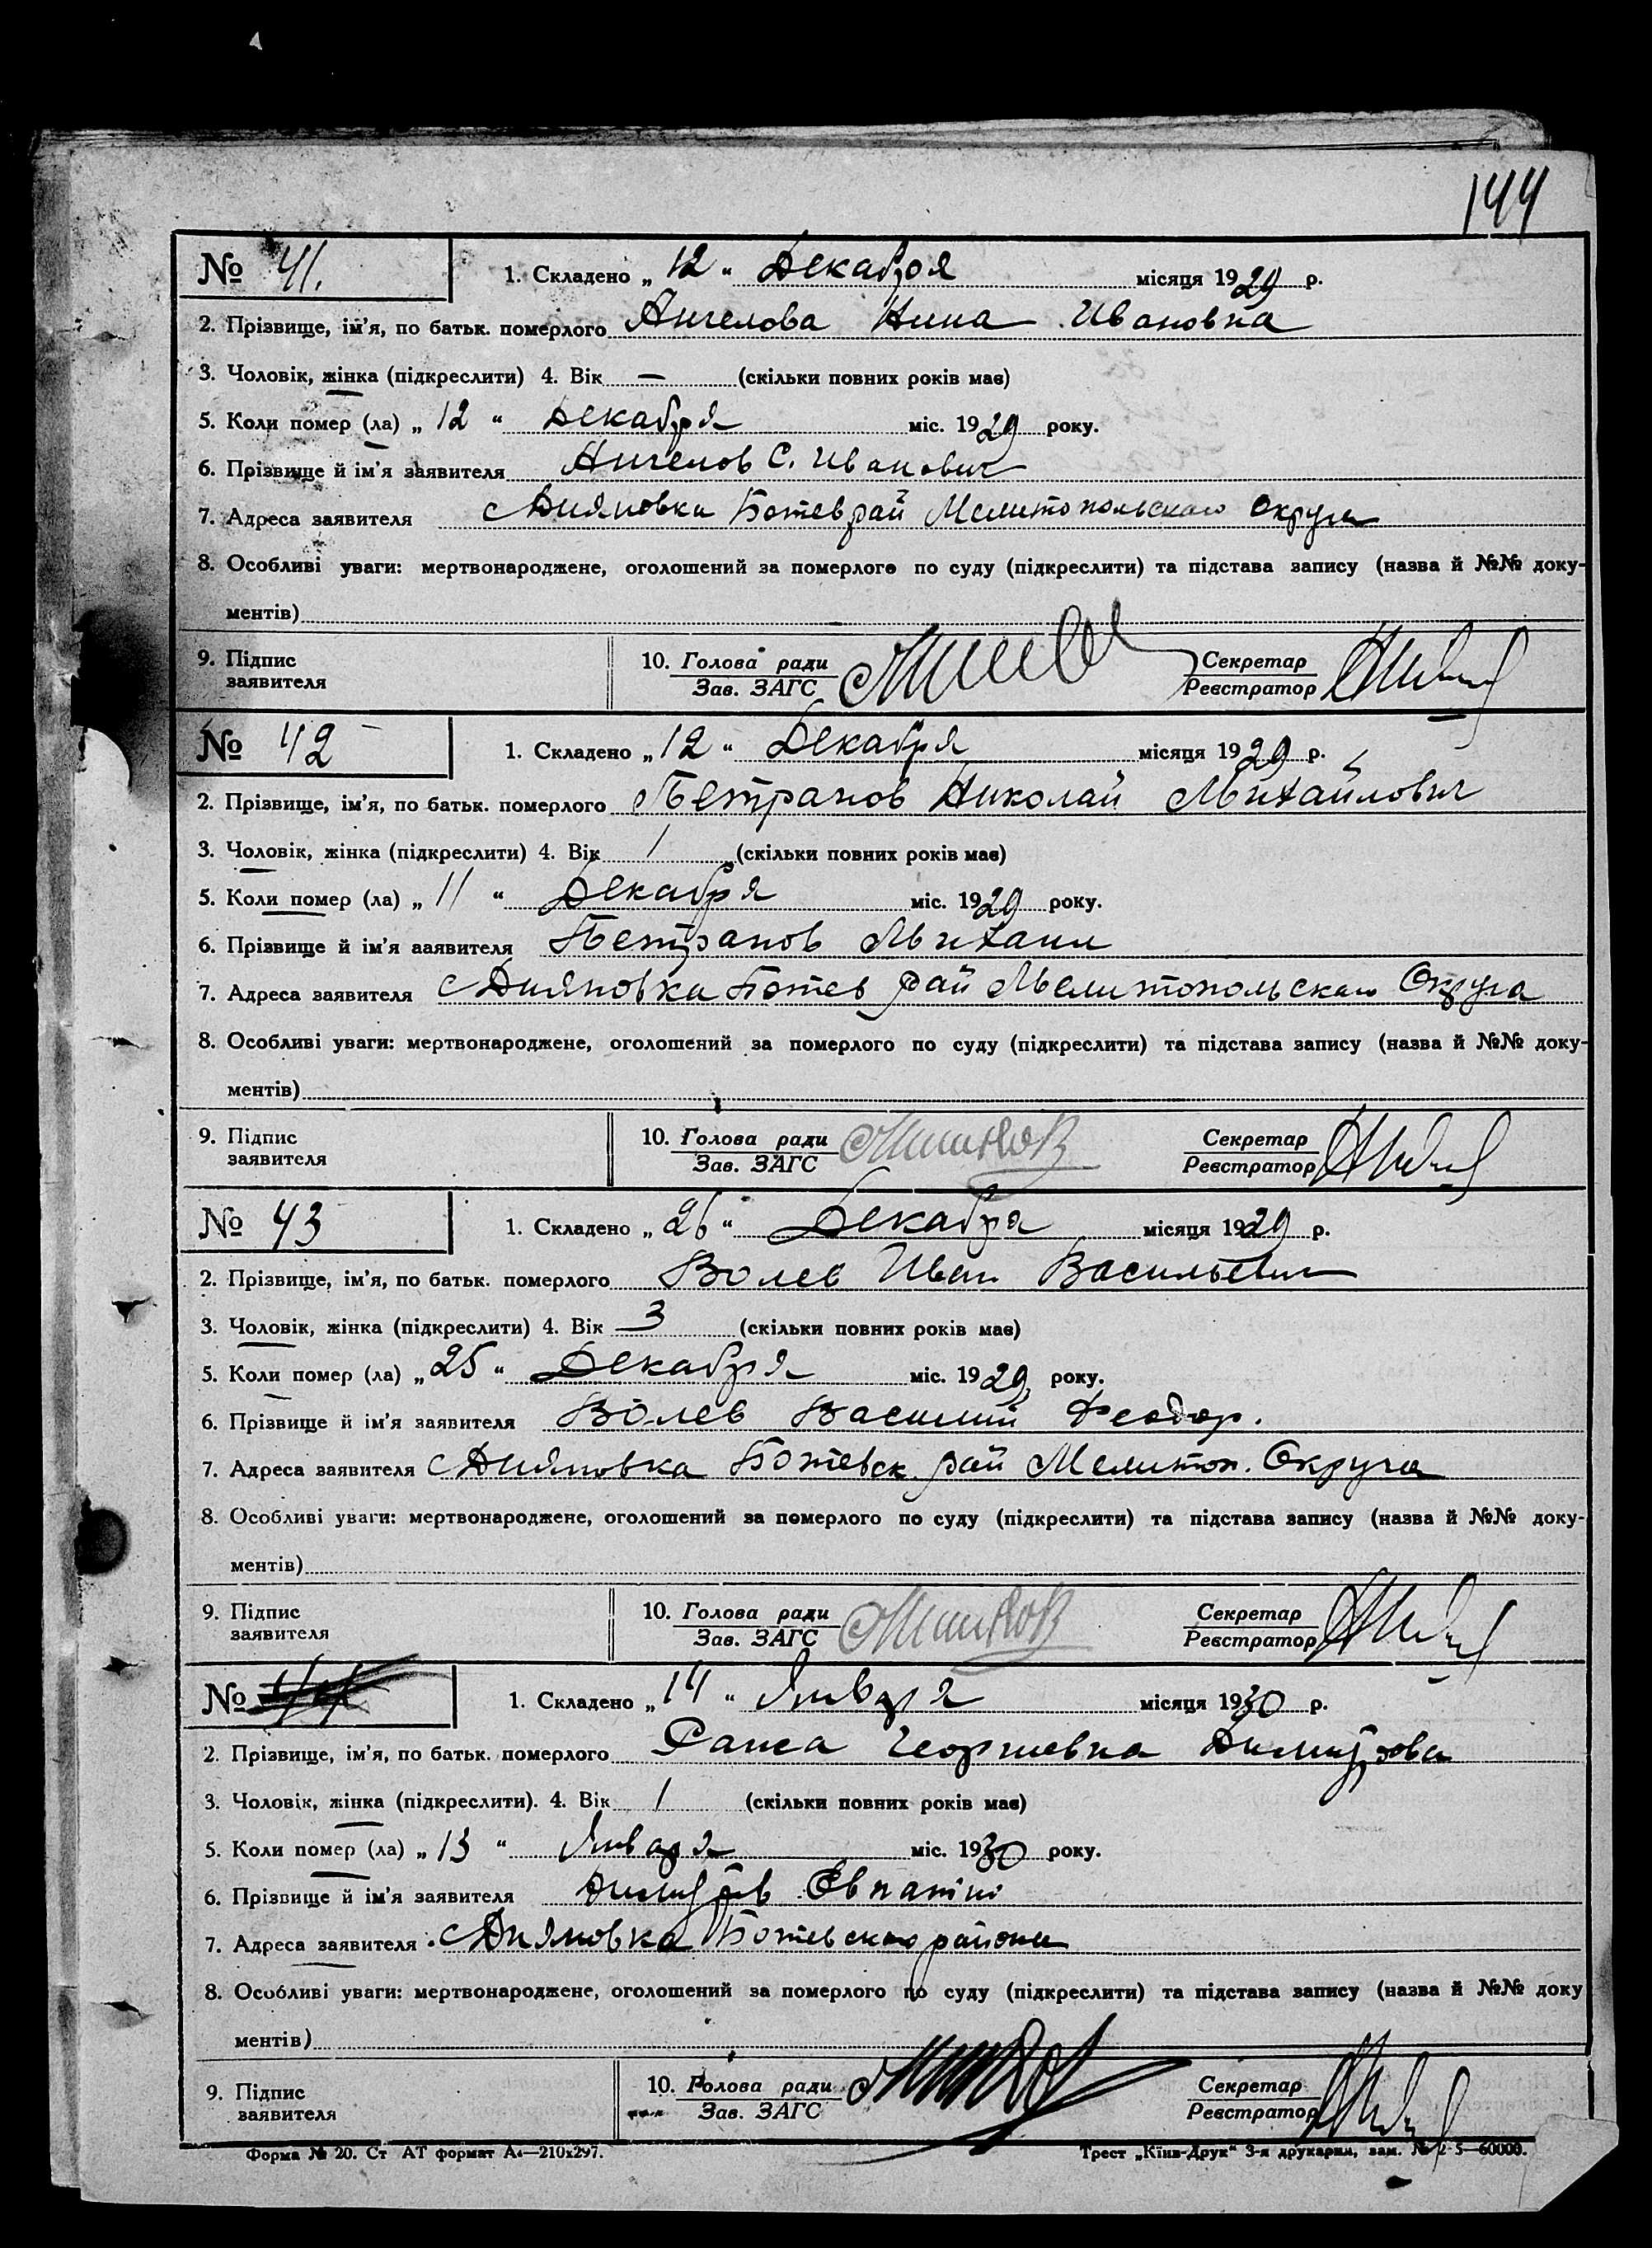 144
№ 41. 1. Складено „12“ Декабря місяця 1929 р.
2. Прізвище, ім'я, по батьк. померлого Ангелова Нина Ивановна
3. Чоловік, жінка (підкреслити) 4. Вік — (скільки повних років має)
5. Коли помер (ла) „12“ Декабря міс. 1929 року.
6. Прізвище й ім'я заявителя Ангелов С. Иванович
7. Адреса заявителя с Дияновка Ботев рай Мелитопольскаго Округа
8. Особливі уваги: мертвонароджене, оголошений за померлого по суду (підкреслити) та підстава запису (назва й №№ доку-
ментів)
9. Підпис заявителя 10. Голова ради Зав. ЗАГС Секретар Реєстратор
№ 42 1. Складено „12“ Декабря місяця 1929 р.
2. Прізвище, ім'я, по батьк. померлого Петранов Николай Михайлович
3. Чоловік, жінка (підкреслити) 4. Вік 1 (скільки повних років має)
5. Коли помер (ла) „11“ Декабря міс. 1929 року.
6. Прізвище й ім'я заявителя Петранов Михаил
7. Адреса заявителя с Дияновка Ботев рай Мелитопольскаго Округа
8. Особливі уваги: мертвонароджене, оголошений за померлого по суду (підкреслити) та підстава запису (назва й №№ доку-
ментів)
9. Підпис заявителя 10. Голова ради Зав. ЗАГС Секретар Реєстратор
№ 43 1. Складено „26“ Декабря місяця 1929 р.
2. Прізвище, ім'я, по батьк. померлого Волев Иван Васильевич
3. Чоловік, жінка (підкреслити) 4. Вік 3 (скільки повних років має)
5. Коли помер (ла) „25“ Декабря міс. 1929 року.
6. Прізвище й ім'я заявителя Волев Василий Феодор.
7. Адреса заявителя с Дияновка Ботевск. рай Мелитоп. Округа
8. Особливі уваги: мертвонароджене, оголошений за померлого по суду (підкреслити) та підстава запису (назва й №№ доку-
ментів)
9. Підпис заявителя 10. Голова ради Зав. ЗАГС Секретар Реєстратор
№ 1. Складено „14“ Января місяця 1930 р.
2. Прізвище, ім'я, по батьк. померлого Раиса Георгиевна Димитрова
3. Чоловік, жінка (підкреслити). 4. Вік 1 (скільки повних років має)
5. Коли помер (ла) „13“ Января міс. 1930 року.
6. Прізвище й ім'я заявителя Димитров
7. Адреса заявителя с Дияновка Ботевскаго района
8. Особливі уваги: мертвонароджене, оголошений за померлого по суду (підкреслити) та підстава запису (назва й №№ доку
ментів)
9. Підпис заявителя 10. Голова ради Зав. ЗАГС Секретар Реєстратор
Форма № 20. Ст АТ формат А₄—210x297. Трест „Київ-Друк“ 3-я друкарня, зам. № 2-5—60000.